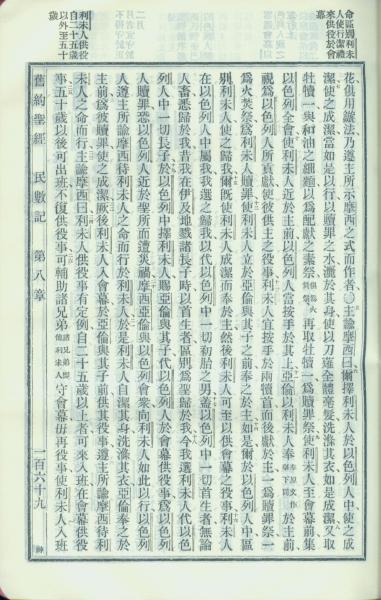 命區別利未
人使行潔禮
來供役於會
幕
利未人供役
自二十五歲
以外至五十
歲
花俱用鏇法乃遵主所示摩西之式而作者○主諭摩西曰爾擇利未人於以色列人中使之成
潔使之成潔當如是以行以贖罪之水灑於其身使以刀薙全體毫髮洗滌其衣如是成潔又取
牡犢一與和油之細麵以爲配獻之素祭再取牡犢一爲贖罪祭使利未人至會幕前集
以色列全會使利未人近於主前以色列人當按手於其上亞倫以利未人奉於主前
視爲以色列人所貢獻使彼供主之役事利未人宜按手於兩犢首而後獻於主一爲贖罪祭一
爲火焚祭爲利未人贖罪使利未人立於亞倫與其子之前奉之於主如是爾於以色列人中區
別利未人使之歸我爾旣使利未人成潔而奉於主然後利未人可至以供會幕之役事利未人
在以色列人中屬我我選之歸我以代以色列中一切初胎之男蓋以色列中一切首生者無論
人畜悉歸於我昔我在伊及地戮諸長子時以首生者區別爲聖歸於我今我選利未人代以色
列人中一切長子於以色列中擇利未人賜亞倫與其子代以色列人於會幕供役事爲以色列
人贖罪恐以色列人近於聖所而遭災禍摩西亞倫與以色列會衆向利未人如此以行以色列
人遵主所諭摩西待利未人之命而行於利未人於是利未人自潔其身洗滌其衣亞倫奉之於
主前爲彼贖罪使之成潔厥後利未人入會幕於亞倫與其子前供其役事遵主所諭摩西待利
未人之命而行主諭摩西曰利未人供役事有定例自二十五歲以上者可來入班在會幕供役
事五十歲以後可出班不復供役事可輔助諸兄弟守會幕毋再役事使利未人入班
舊約聖經 民數記 第八章 一百六十九